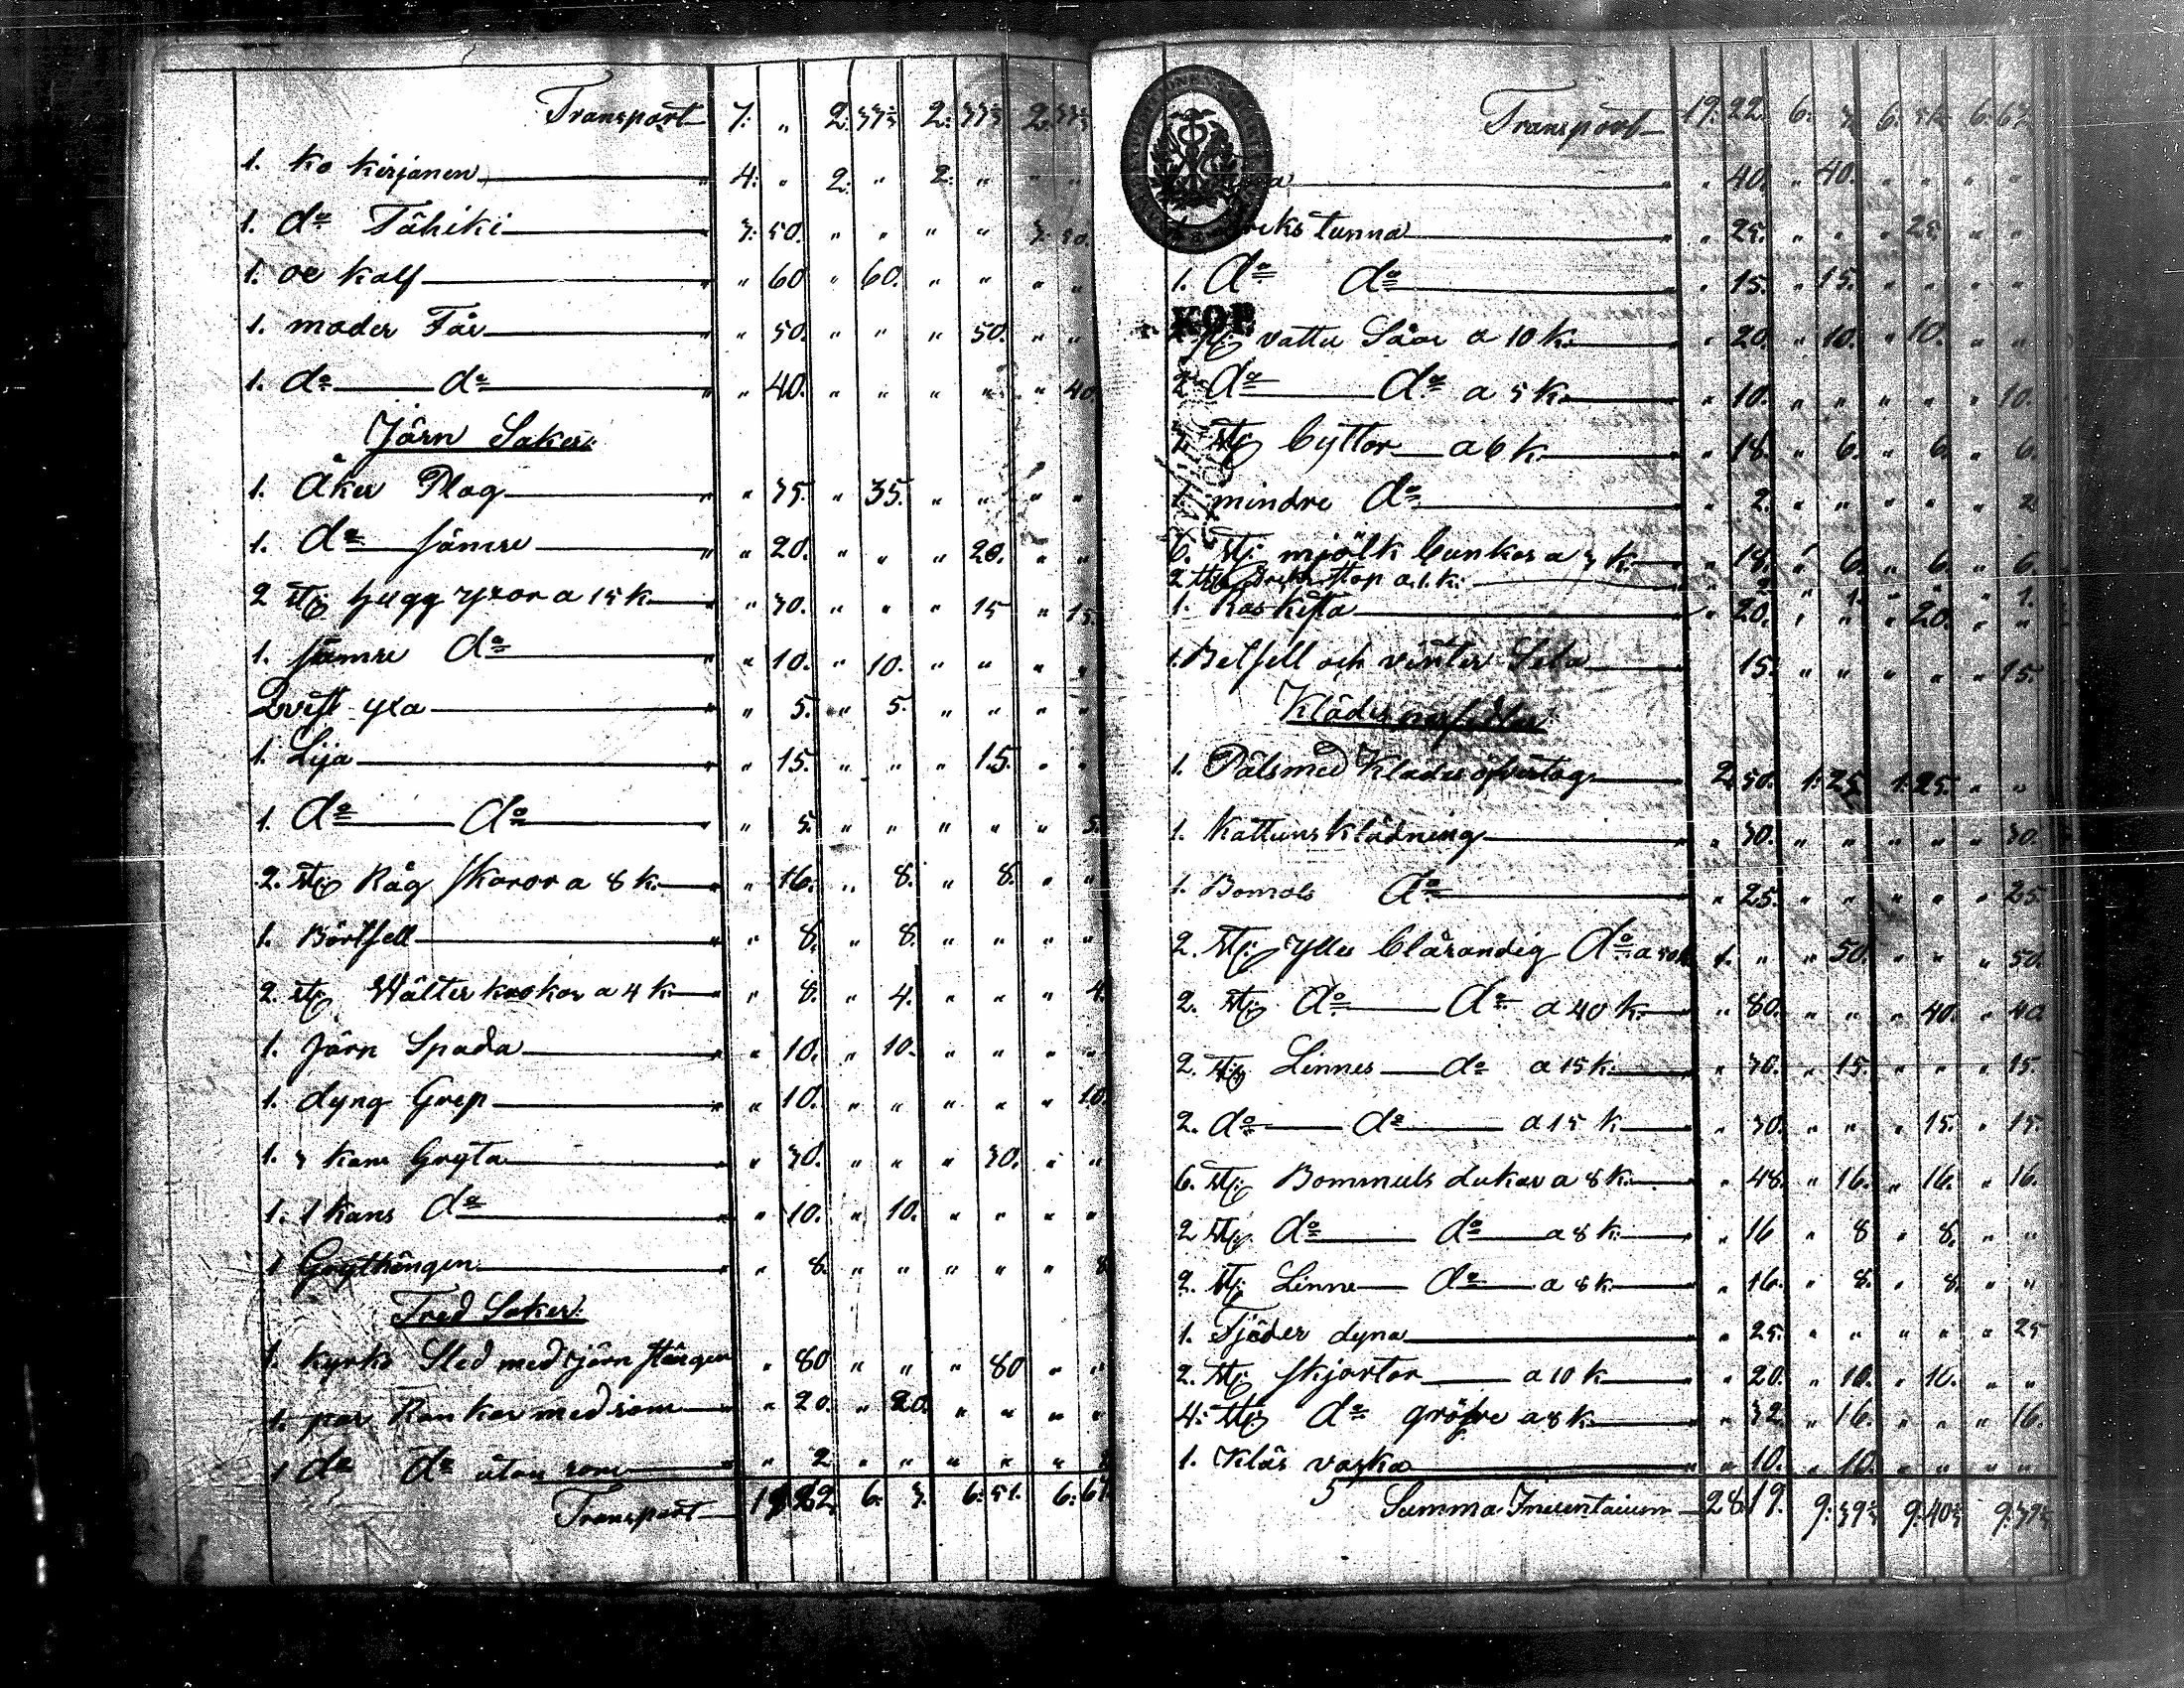 Transport 7: „ 2: 33⅓ 2: 33⅓ 2: 33⅓
1. Ko Kirjanen „ 4: „ 2: „ 2: „ „ „
1. do Tähiki „ 3: 50. „ „ „ „ 3: 50.
1. oe Kalf „ „ 60 „ 60. „ „ „ „
1. moder Får „ „ 50. „ „ „ 50. „ „
1. do do „ „ 40. „ „ „ „ „ 40.
Järn Saker:
1. Åker Plog „ „ 35. „ 35. „ „ „ „
1. do sämre „ „ 20. „ „ „ 20. „ „
2 st: hugg yxor a 15 k. „ „ 30. „ „ „ 15 „ 15.
1. sämre do „ „ 10. „ 10. „ „ „ „
Qvist yxa „ „ 5. „ 5. „ „ „ „
1. Lija „ „ 15. „ „ „ 15. „ „
1. do do „ 5. „ „ „ „ „ 5.
2. st: Råg skäror a 8 k. „ „ 16. „ 8. „ 8. „ „
1. „ „ 8. „ 8. „ „ „ „
2. st: a 4 k. „ „ 8. „ 4. „ „ „ 4.
1. Järn Spada „ „ 10. „ 10. „ „ „ „
1. dyng Grep „ „ 10. „ „ „ „ „ 10.
1. 3 kans Gryta „ „ 30. „ „ „ 30. „ „
1. 1 kans do „ „ 10. „ 10. „ „ „ „
1 Grythängen „ „ 8. „ „ „ „ „ 8
Tred Saker:
1. Kyrko Sled med järn stänger „ 80 „ „ „ 80 „ „
1. par Rankor med rom „ „ 20. „ 20. „ „ „ „
1 do do utan rom „ „ 2 „ „ „ „ „ 2
Transport 19 22. 6. 3. 6: 51. 6: 67.
Transport 19: 22. 6. 3. 6: 51. 6: 67
„ „ 40. „ 40. „ „ „ „
tunna „ „ 25. „ „ „ 25. „ „
1. do do „ „ 15. „ 15. „ „ „ „
KOP
2. st: vattu Såar a 10 k. „ „ 20. „ 10. „ 10. „ „
2 do do a 5 k. „ „ 10. „ „ „ „ „ 10.
3. st: byttor a 6 k. „ „ 18. „ 6. „ 6. „ 6.
1. mindre do „ „ 2. „ „ „ „ „ 2
6. st: mjölk bunkar a 3 k. „ „ 18. „ 6. „ 6. „ 6.
2 st: stop a 1. k: „ „ 2 „ 1. „ „ „ 1.
1. Kista „ „ 20. „ „ „ 20. „ „
1. och vinter Sela 15. „ „ „ „ „ 15.
Klädes persedlar
1. Päls med Klädes öfvertog 2: 50. 1: 25. 1: 25. „ „
1. Kattuns Klädning „ „ 30. „ „ „ „ „ 30.
1. Bomols do „ „ 25. „ „ „ „ „ 25.
2. st: ylle blårandig do a 50 k 1. „ „ 50. „ „ „ 50.
2. st: do do a 40 k. „ „ 80. „ „ „ 40. „ 40
2. st: Linnes do a 15 k. „ „ 30. „ 15. „ „ „ 15.
2. do do a 15 k „ 30. „ „ „ 15. „ 15.
6. st: Bommuls dukar a 8 k. „ 48. „ 16. „ 16. „ 16.
2 st: do do a 8 k. „ „ 16 „ 8 „ 8. „ „
2. st: Linne do a 8 k. „ 16. „ 8. „ 8. „ „
1. Fjäder dyna „ „ 25. „ „ „ „ „ 25
2. st: skjortor a 10 k „ „ 20. „ 10. „ 10. „ „
4. st: do gröfre a 8 k. „ „ 32. „ 16. „ „ „ 16.
1. Klås vaska „ „ 10. „ 10. „ „ „ „
Summa Inventarium 28: 19. 9: 39⅓ 9: 40⅓ 9: 39⅓